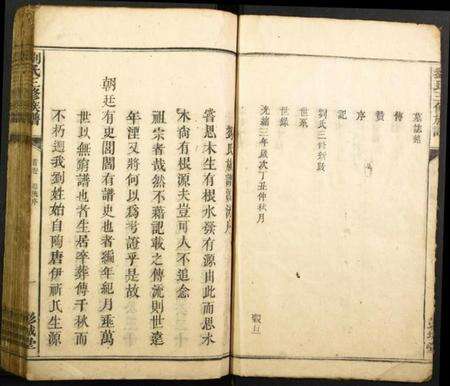 墓誌銘
傳
贊
序
記
劉氏三修新叚
世系
世錄
光緒三年歲次丁丑仲秋月
劉氏族譜源序
嘗思木生有根水發有源由此而思水
木尚有根源夫豈可人不追念
祖宗者哉然不藉記載之傳流則世遠
年湮又將何以爲考證乎是故
朝廷有史閭閻有譜史也者編年紀月垂萬
世以無窮譜也者生居卒葬傳千秋而
不朽溯我劉姓始自陶唐伊祈氏生源
劉氏三修族譜
彭城堂